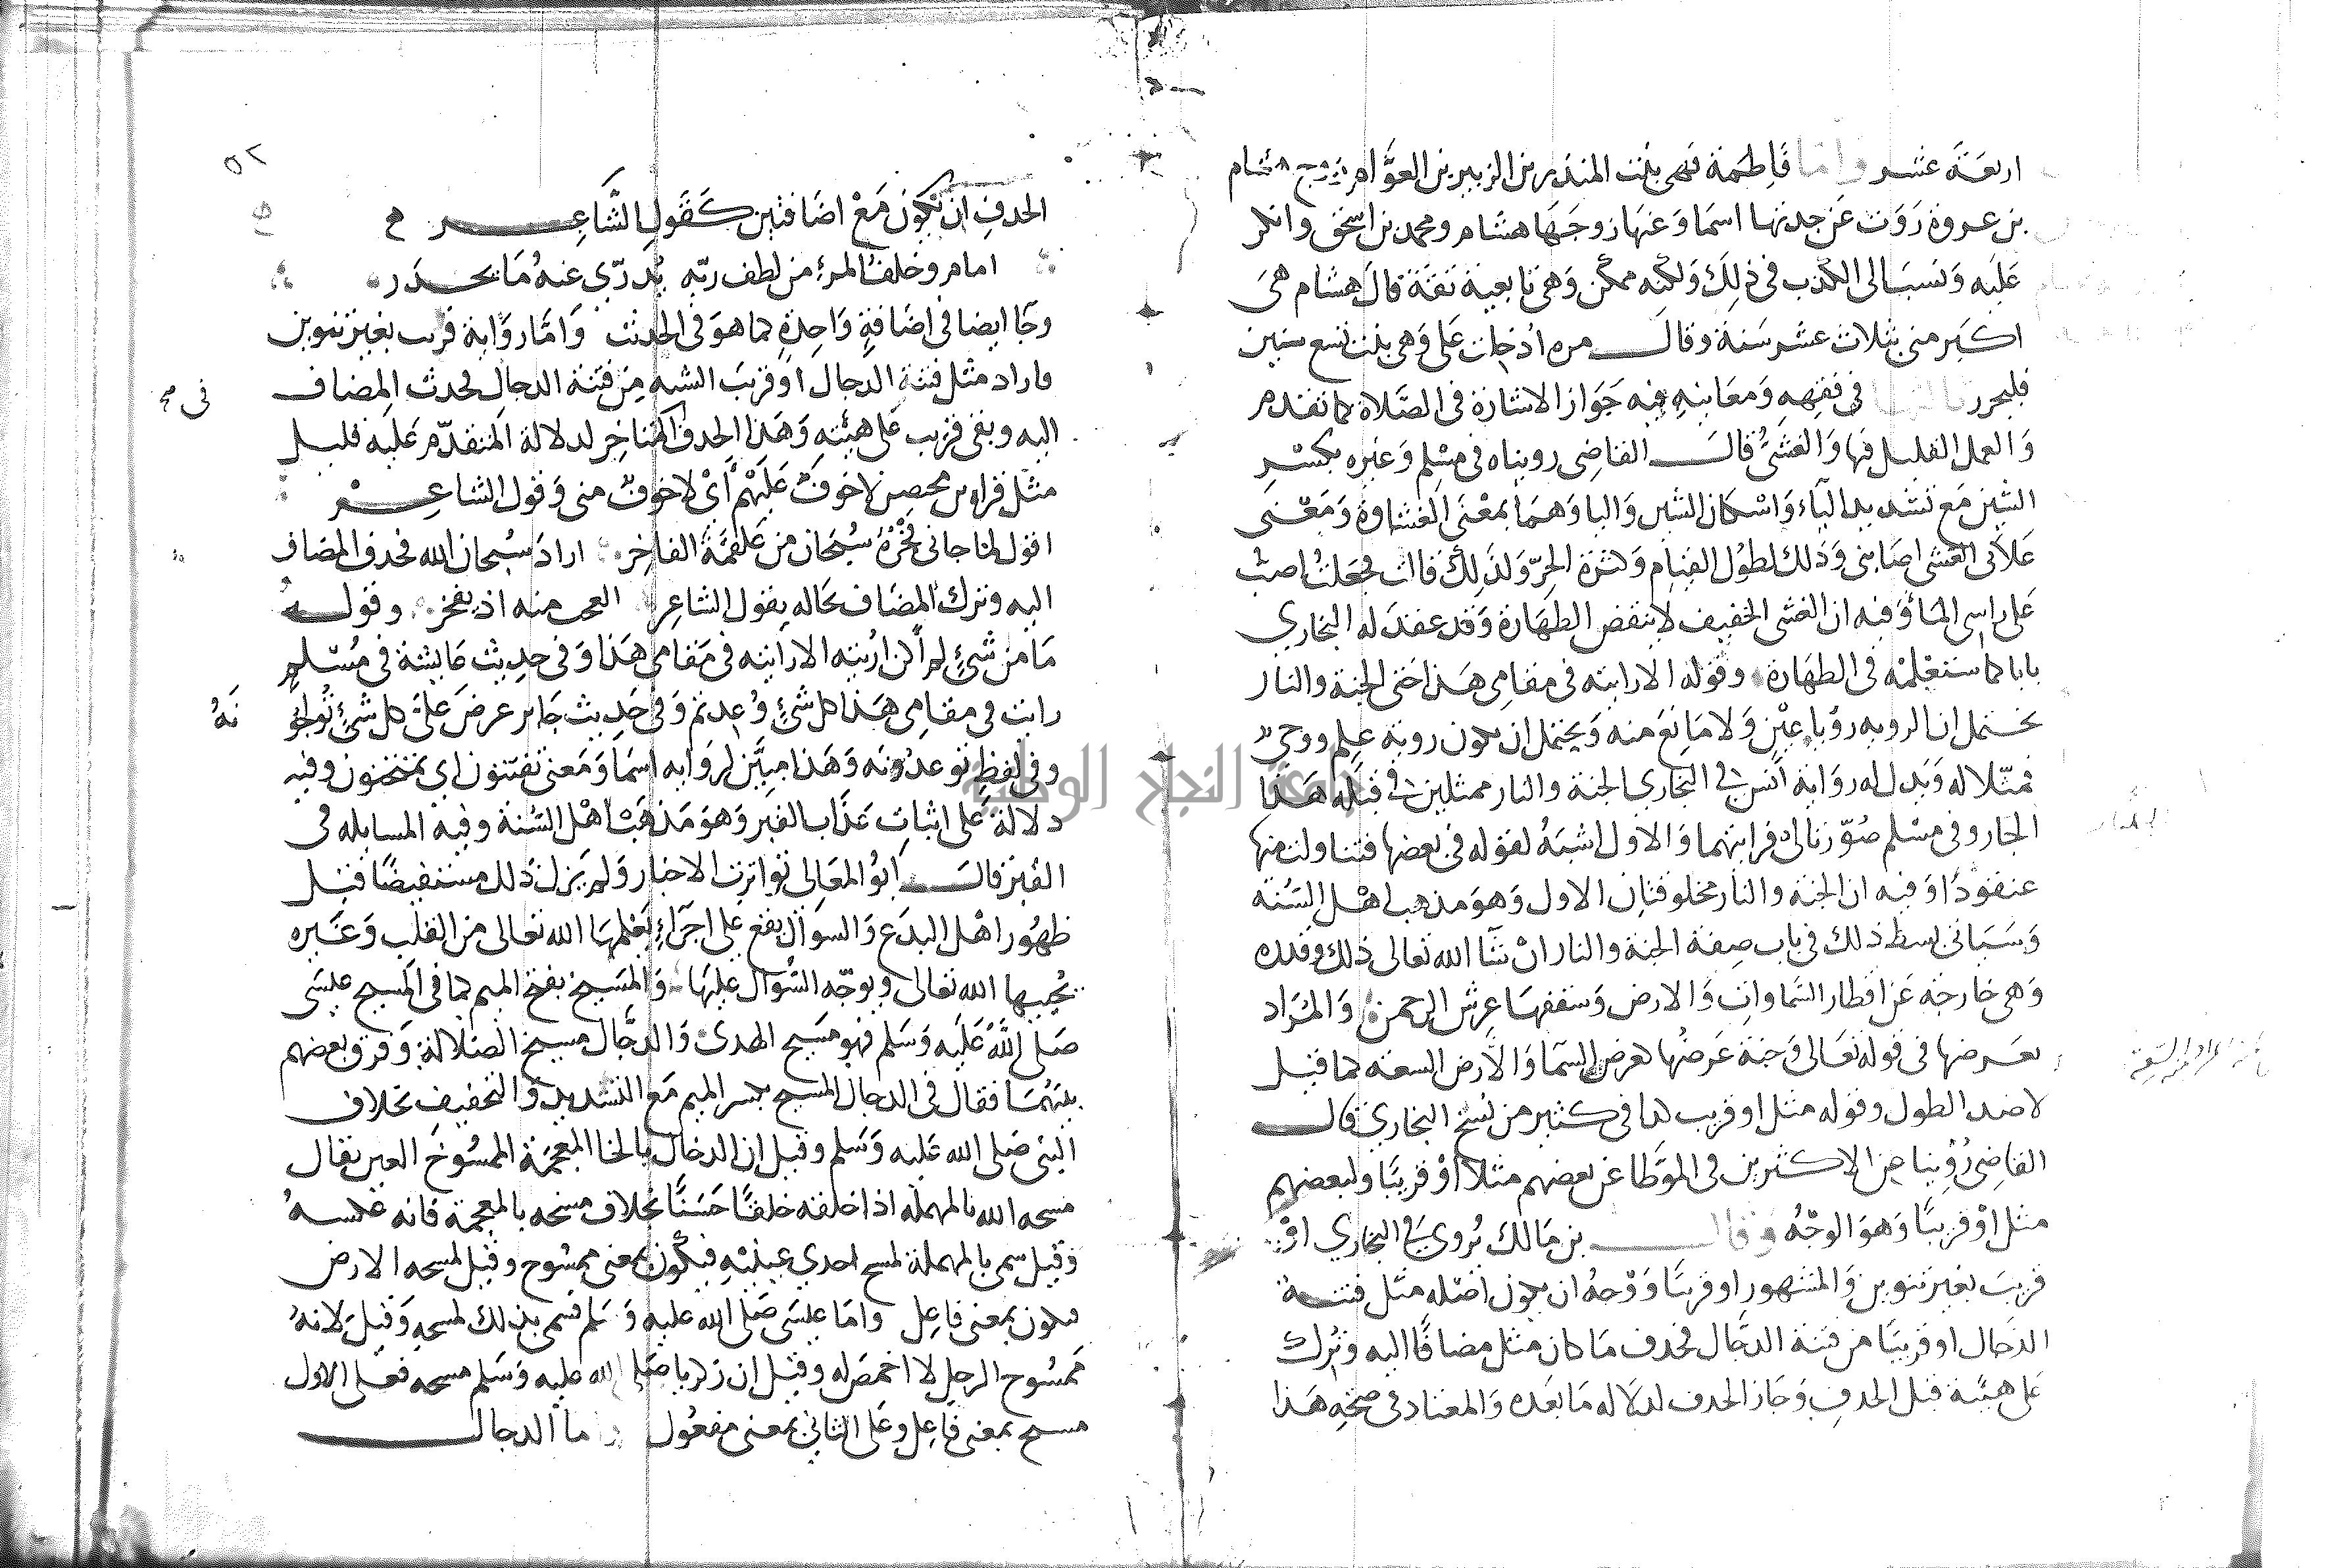 اربعة عشر واما فاطمة فهي بنت المنذر بن الزبير بن العوام زوج هشام
بن عروة رَوَت عن جدتها اسما وَعنها زوجَها هشام ومحمد بن اسحق وانكر
عَليه وَنسبَ الى الكذب في ذلِكَ وَلكنه ممكن وَهي تابعية ثقة قالَ هشام هيَ
اكبَر مني بثلاث عشر سَنة وقالـــ مره ادخلت عَلي وَهي بنت تسع سنين
فليحرر في فقهِهِ وَمعَانيهِ فيه جَوَاز الاشارة في الصَّلاة كما تقدم
وَالعمل القليل فيها وَالغشيُّ قالـــ القاضي رويناه في مسْلم وَغيره بكسْرِ
الشين مَع تشديد اليَاء وَاسْكان الشين وَاليا وَهمَا بمعْنَى الغشاوة وَمَعْنى
عَلاني الغشي اصَابني وَذلك لطوُل القيام وَكثرة الحرّ وَلذَلِكَ قالت فجَعَلتُ اصبُ
عَلى راسي المَا وَفيه ان الغشي الخفيف لا ينقض الطهَارة وَقد عقدَ له البخاري
بابا كما ستعْلمْه في الطهَارة وقوله الا رايته في مقامي هَذا حَتى الجنة والنار
يحتمل ان الرويه رؤيا عيْن وَلا مَانِعَ منه وَيحتمل ان يكون روية عِلم ووحي
مُمثلا له وَيدل له روَاية اَنس في البخاري الجنة والنار ممثلين في قبلة هَذا
الجدار وفي مسْلم صُوّرتا لي فرايتهما وَالاول اشبَهُ لقوله في بعضها فتناولت منها
عنقودًا وَفيه ان الجنة والنار مخلوقتان الاول وَهوَ مذهب اهل السُنة
وَسَيَاتي بسط ذلك في باب صِفة الجنة والنار انْ شآ الله تعالى ذلك وقدره
وَهي خارجَة عَن اقطار السَّماوَات وَالارض وَسَقفهَا عِرش الرحمن وَالمرَاد
بعَرضها في قوله تعَالى وَجنة عَرضُها كعرض السمآ وَالاَرض السعه كما قيل
لا ضد الطول وقوله مثل او قريب كذا في كثير من نسَخ البخاري قالـــ
القاضِي رُوِّينا عن الاكثرين في الموَّطا عن بعضهم مثلاً أوْ قريبًا ولبعضهم
مثل اوْ قريبًا وَهوَ الوجْهُ وَقالـــ بن مَالك يُروى في البخاري اوْ
قريبَ بغير تنوين وَالمشهور او قريبًا وَوجهُ ان يكون اصْله مثل فتنـــة
الدَجال او قريبًا من فتنة الدجَّال فحُذف مَا كان مثل مضافًا اليه وَتُرك
عَلى هيئة قبل الحذفِ وَجَاز الحذف لدلالة مَا بَعده وَالمعتاد في صحَّة هَذا
٥٢
الحذفِ ان يكون مَعْ اضَافتين كَقولِ الشَّاعِـــر
امام وخلفُ المرءِ من لطف ربّه كوالئ تزوي عنهُ مَا يحـــذر
وجَا ايضا في اضَافةٍ وَاحِدةٍ كما هوَ في الحديث وَامَّا روَاية قرب بغير تنوين
فاراد مثل فتنة الدجال او قربَ الشبه مِن فتنة الدجال فحذف المضاف
اليه وبقي قريب عَلى هيئتهِ وَهذا الحذف المتاخِر لدلالة المتقدّم عَليه قليل
مثل قراءة بن محيصِن لا خوفُ عَلَيْهمْ أيْ لا خوفٌ مني وَقول الشاعِـــر
اقول لما جاني فخْرُهُ سُبحَان من عَلقمَة الفاخِر ارادَ سُبحان الله فحذف المضاف
اليه وترك المضَاف بحَاله يقول الشاعِر العجب منه اذ يفخر وقولـــه
مَا من شيءٍ لم اكن ارُيته الا رايته في مَقامي هَذا وَفي حدِيث عَايشة في مُسْلم
رايت في مقامي هَذا كل شيءٍ وُعِدتم وَفي حَدِيث جَابر عرضَ عَليَّ كل شيءٍ تُولجونَهُ
وفي لفظِ توعدُونه وَهَذا مبيّن لروَاية اسَمَا وَمعنى تفتنون اي تمتحَنون وفيه
دلالة عَلى اثبات عَذاب القبر وَهوَ مَذهَبُ اهْل السُّنة وفيه المسايله في
القبر قالـــ اَبوُ المعَالي تواترت الاخبار وَلم يَزل ذلك مستفيضًا قبـل
ظهُور اهْل البدَع وَالسوَال يقع على اجزاءٍ يَعْلمهَا الله تعَالى من القلب وَغيره
يُحييها الله تعَالى ويوَجّه السُّوَال عليهَا وَالمَسيح بفتح الميم كما في المَسيح عيسَى
صَلى اللهُ عَليه وَسَلم فهو مَسَيح الهدى وَالدجَّال مسيح الضلالة وَفرق بعضهم
بينهُمَا فقال في الدجال المسيح بكسر الميم مَع التشديد وَالتخفيف بخلاف
النبي صَلى الله عَليه وَسَلم وقيل ان الدجال بالخا المعجَمة الممسُوخَ العين يقال
مسحه الله بالمهملة اذا خلقه خلقًا حَسَنًا بخلاف مسخه بالمعجمة فانه عكسـهُ
وَقيل سمي بالمهملة لمسح احدي عينيْه فيكُون بمعنى ممسُوح وقيل لمسحه الارض
فيكون بمعنى فاعِل وامَا عيسَى صَلى الله عليه وَسَلم فسمي بذلك لمسحهِ وَقيل لانهُ
مَمسُوح الرجل لا اخمصَ له وقيل ان زكريا صَلى الله عليه وَسَلم مسحه فعلى الاول
مسيح بمعنى فاعِل وعَلى الثاني بمعنى مفعُول واما الدجالـــ